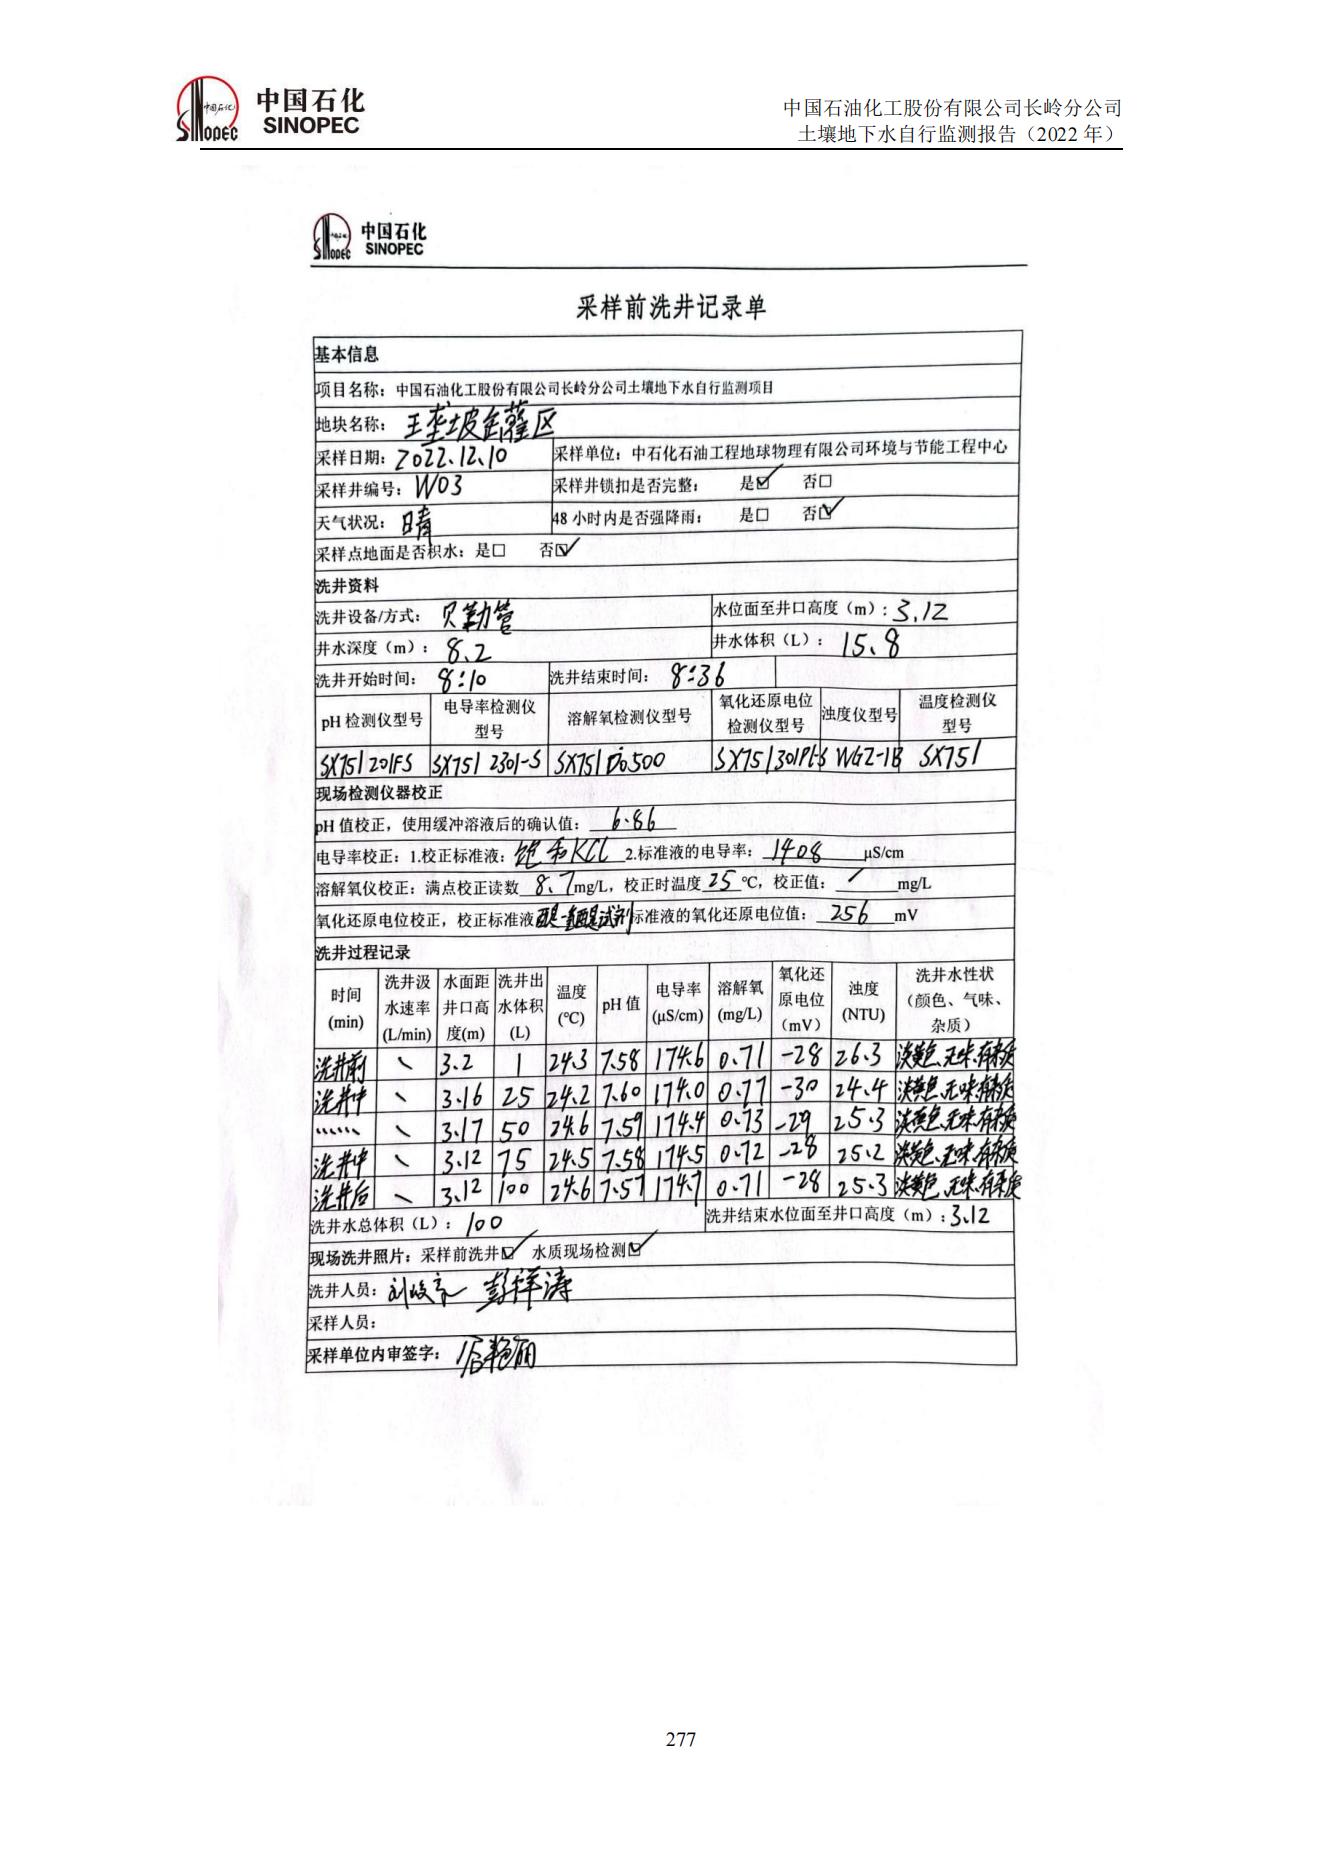 中国石化
SINOPEC
中国石油化工股份有限公司长岭分公司
土壤地下水自行监测报告（2022 年）
中国石化
SINOPEC
采样前洗井记录单
基本信息
项目名称：中国石油化工股份有限公司长岭分公司土壤地下水自行监测项目
地块名称：王垄坡储罐区
采样日期：2022.12.10 采样单位：中石化石油工程地球物理有限公司环境与节能工程中心
采样井编号：W03 采样井锁扣是否完整： 是☑ 否□
天气状况：晴 48 小时内是否强降雨： 是□ 否☑
采样点地面是否积水：是□ 否☑
洗井资料
洗井设备/方式：贝勒管 水位面至井口高度（m）：3.12
井水深度（m）：8.2 井水体积（L）：15.8
洗井开始时间：8:10 洗井结束时间：8:36
pH 检测仪型号 电导率检测仪型号 溶解氧检测仪型号 氧化还原电位检测仪型号 浊度仪型号 温度检测仪型号
SX751 201FS SX751 2301-S SX751 DO500 SX751 301Pt-S WGZ-1B SX751
现场检测仪器校正
pH 值校正，使用缓冲溶液后的确认值：6.86
电导率校正：1.校正标准液：饱和KCL 2.标准液的电导率：1408 μS/cm
溶解氧仪校正：满点校正读数 8.7 mg/L，校正时温度 25 ℃，校正值：/ mg/L
氧化还原电位校正，校正标准液 醌-氢醌试剂 标准液的氧化还原电位值：256 mV
洗井过程记录
时间(min) 洗井汲水速率(L/min) 水面距井口高度(m) 洗井出水体积(L) 温度(℃) pH 值 电导率(μS/cm) 溶解氧(mg/L) 氧化还原电位（mV） 浊度(NTU) 洗井水性状（颜色、气味、杂质）
洗井前 \ 3.2 1 24.3 7.58 174.6 0.71 -28 26.3 淡黄色、无味、有杂质
洗井中 \ 3.16 25 24.2 7.60 174.0 0.77 -30 24.4 淡黄色、无味、有杂质
…… \ 3.17 50 24.6 7.59 174.4 0.73 -29 25.3 淡黄色、无味、有杂质
洗井中 \ 3.12 75 24.5 7.58 174.5 0.72 -28 25.2 淡黄色、无味、有杂质
洗井后 \ 3.12 100 24.6 7.57 174.7 0.71 -28 25.3 淡黄色、无味、有杂质
洗井水总体积（L）：100 洗井结束水位面至井口高度（m）：3.12
现场洗井照片：采样前洗井☑ 水质现场检测☑
洗井人员： 彭祥涛
采样人员：
采样单位内审签字：
277